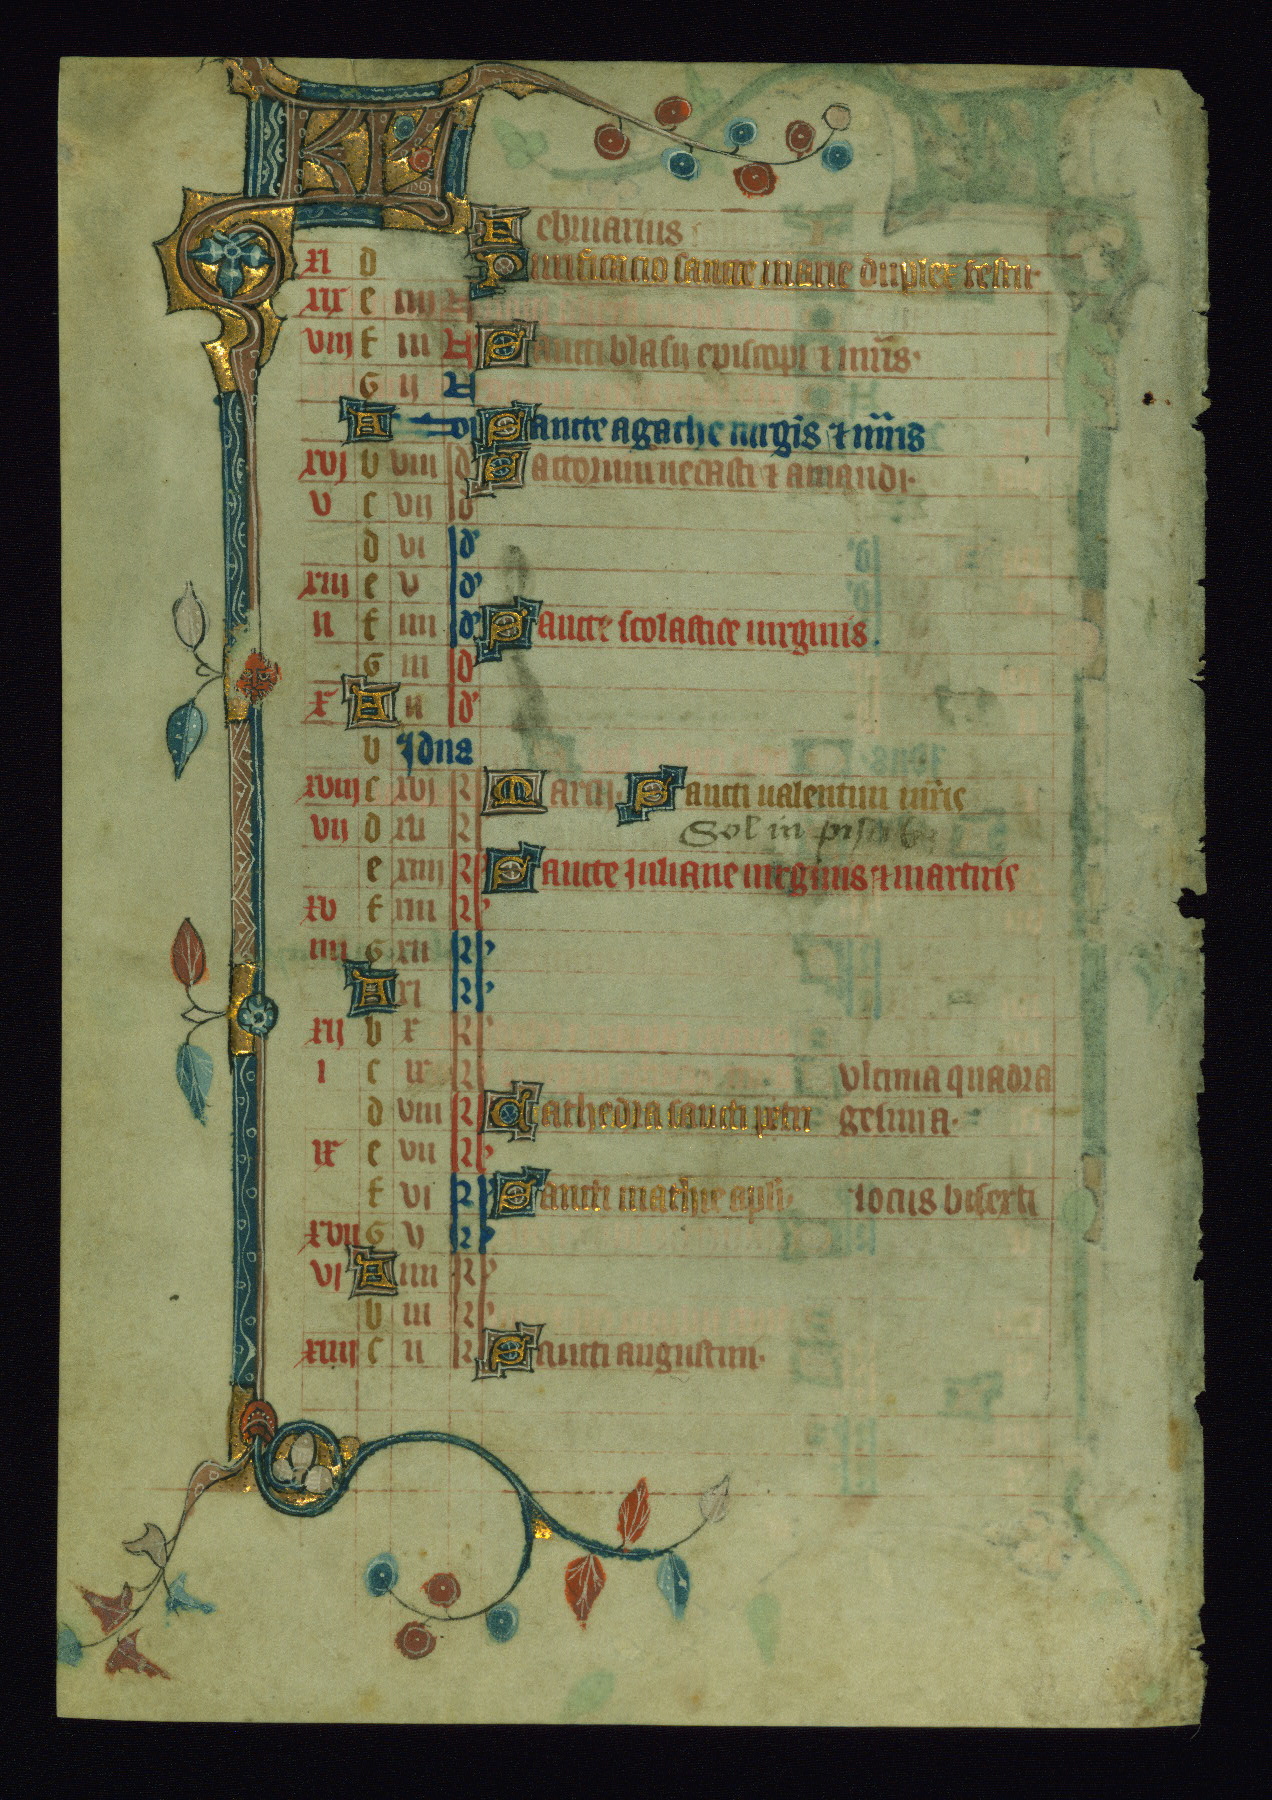 KL
Februarius
xi d Purificatio sancte marie duplex festū·
xix e iiii N
viii f iii N Sancti blasii episcopi ⁊ mr̄is·
G ii N
A Sancte agathe uirgīs ⁊ mr̄is
xvi b viii id Sanctorum uedasti ⁊ amandi·
v c vii id
d vi id'
xiii e v id'
ii f iiii id' Sancte scolastice uirginis.
G iii id
x A ii id'
b Idus
xviii c xvi kl Marcij. Sancti ualentini mr̄is
Sol in piscib;
vii d xv kl
e xiiii kl Sancte Juliane uirginis ⁊ martiris
xv f xiii kl
iiii G xii kl
A xi kl
xii b x kl
i c ix kl vltima quadra
d viii kl Cathedra sancti petri gesima·
ix e vii kl
f vi kl Sancti mathie apl̄i· locus bisexti
xvii G v kl
vi A iiii kl
b iii kl
xiiii c ii kl Sancti augustini·